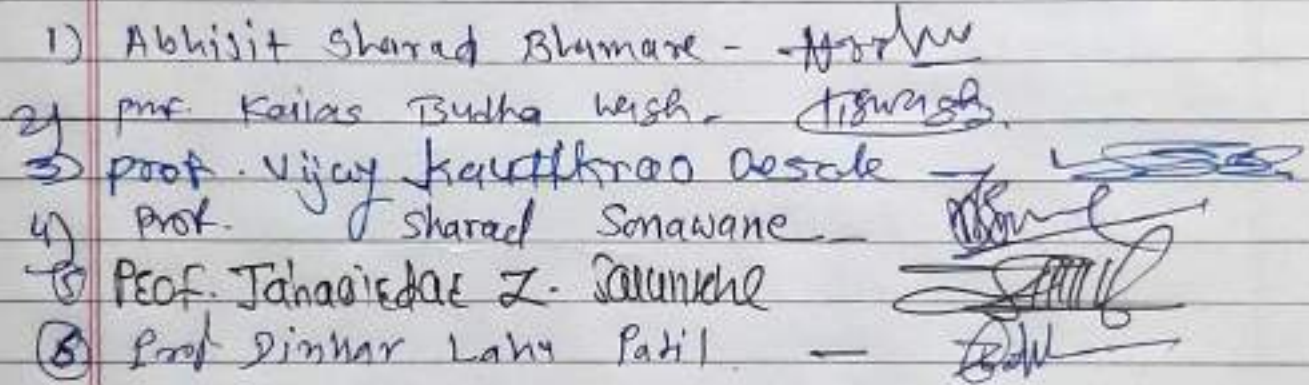 1) Abhijit Sharad Bhamare -
2) prof. Kailas Budha wagh -
3) proof. Vijay Kautikrao Desale -
4) Prof. Sharad Sonawane -
5 Prof. Jahagirdar Z. Salunkhe
6 Prof Dinkar Lahu Patil -